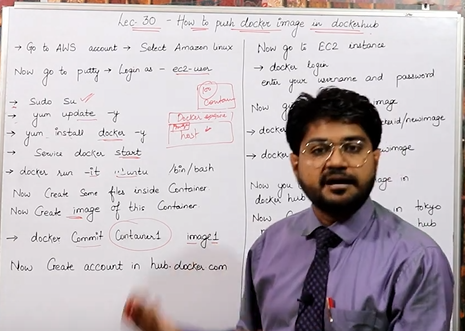 Lec-30 - How to push docker image in dockerhub
→ Go to AWS account → Select Amazon linux
Now go to putty → Login as - ec2-user
→ Sudo su
→ yum update -y
→ yum install docker -y
→ Service docker start
→ docker run -it ubuntu /bin/bash
Now Create Some files inside Container
Now Create image of this Container
→ docker Commit Container1 image1
Now Create account in hub.docker.com
Container
Docker engine
host
Now go to EC2 instance
→ docker login
enter your username and password
Now image
→ docke /newimage
→ docke newimage
Now you image in
docker hub
Now in tokyo
hub